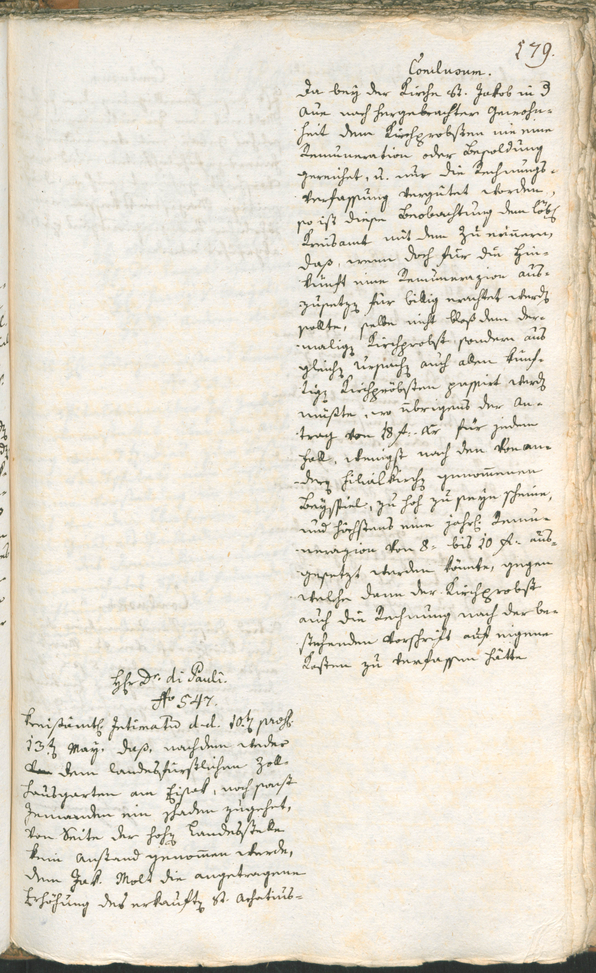 179.
Conclusum.
Da bey der Kirche St. Jakob in d
Aue nach hergebrachter Gewohn-
heit dem Kirchprobsten nie eine
Remuneration oder Besoldung
gereichet, u. nur die Rechnungs-
verfassung vergütet worden,
so ist diese Beobachtung dem löbl
Kreisamt mit dem zu erinnern,
daß, wenn doch für die Hin-
kunft eine Remunerazion aus-
zusetzen für billig erachtet werden
sollte, selbe nicht bloß dem der-
maligen Kirchprobst sondern aus
gleicher Ursache auch allen künf-
tigen Kirchpröbsten passirt werden
müßte, wo übrigens der An-
trag von 18 f. Kr für jeden
Fall, wenigst nach den von an-
dern Filialkirchen genommenen
Beyspiel, zu hoch zu seyn scheine,
und höchstens eine jährl Remu-
nerazion von 8- bis 10 f. aus-
gesetzt werden könnte, gegen
welche dann der Kirchprobst
auch die Rechnung nach der be-
stehenden Vorschrift auf eigene
Kosten zu verfassen hätte
Hr Dr. di Pauli.
No 547.
Kreisämtl Intimatum d.d. 10t praes.
13t May. daß, nachdem weder
dem landesfürstlichen Zoll-
hausgarten am Eisak, noch sonst
Jemanden ein Schaden zugehet,
von Seite der hohen Landesstelle
kein Anstand genommen werde,
dem Jak. Molt die angetragene
Erhöhung des erkauften St. Achatius-